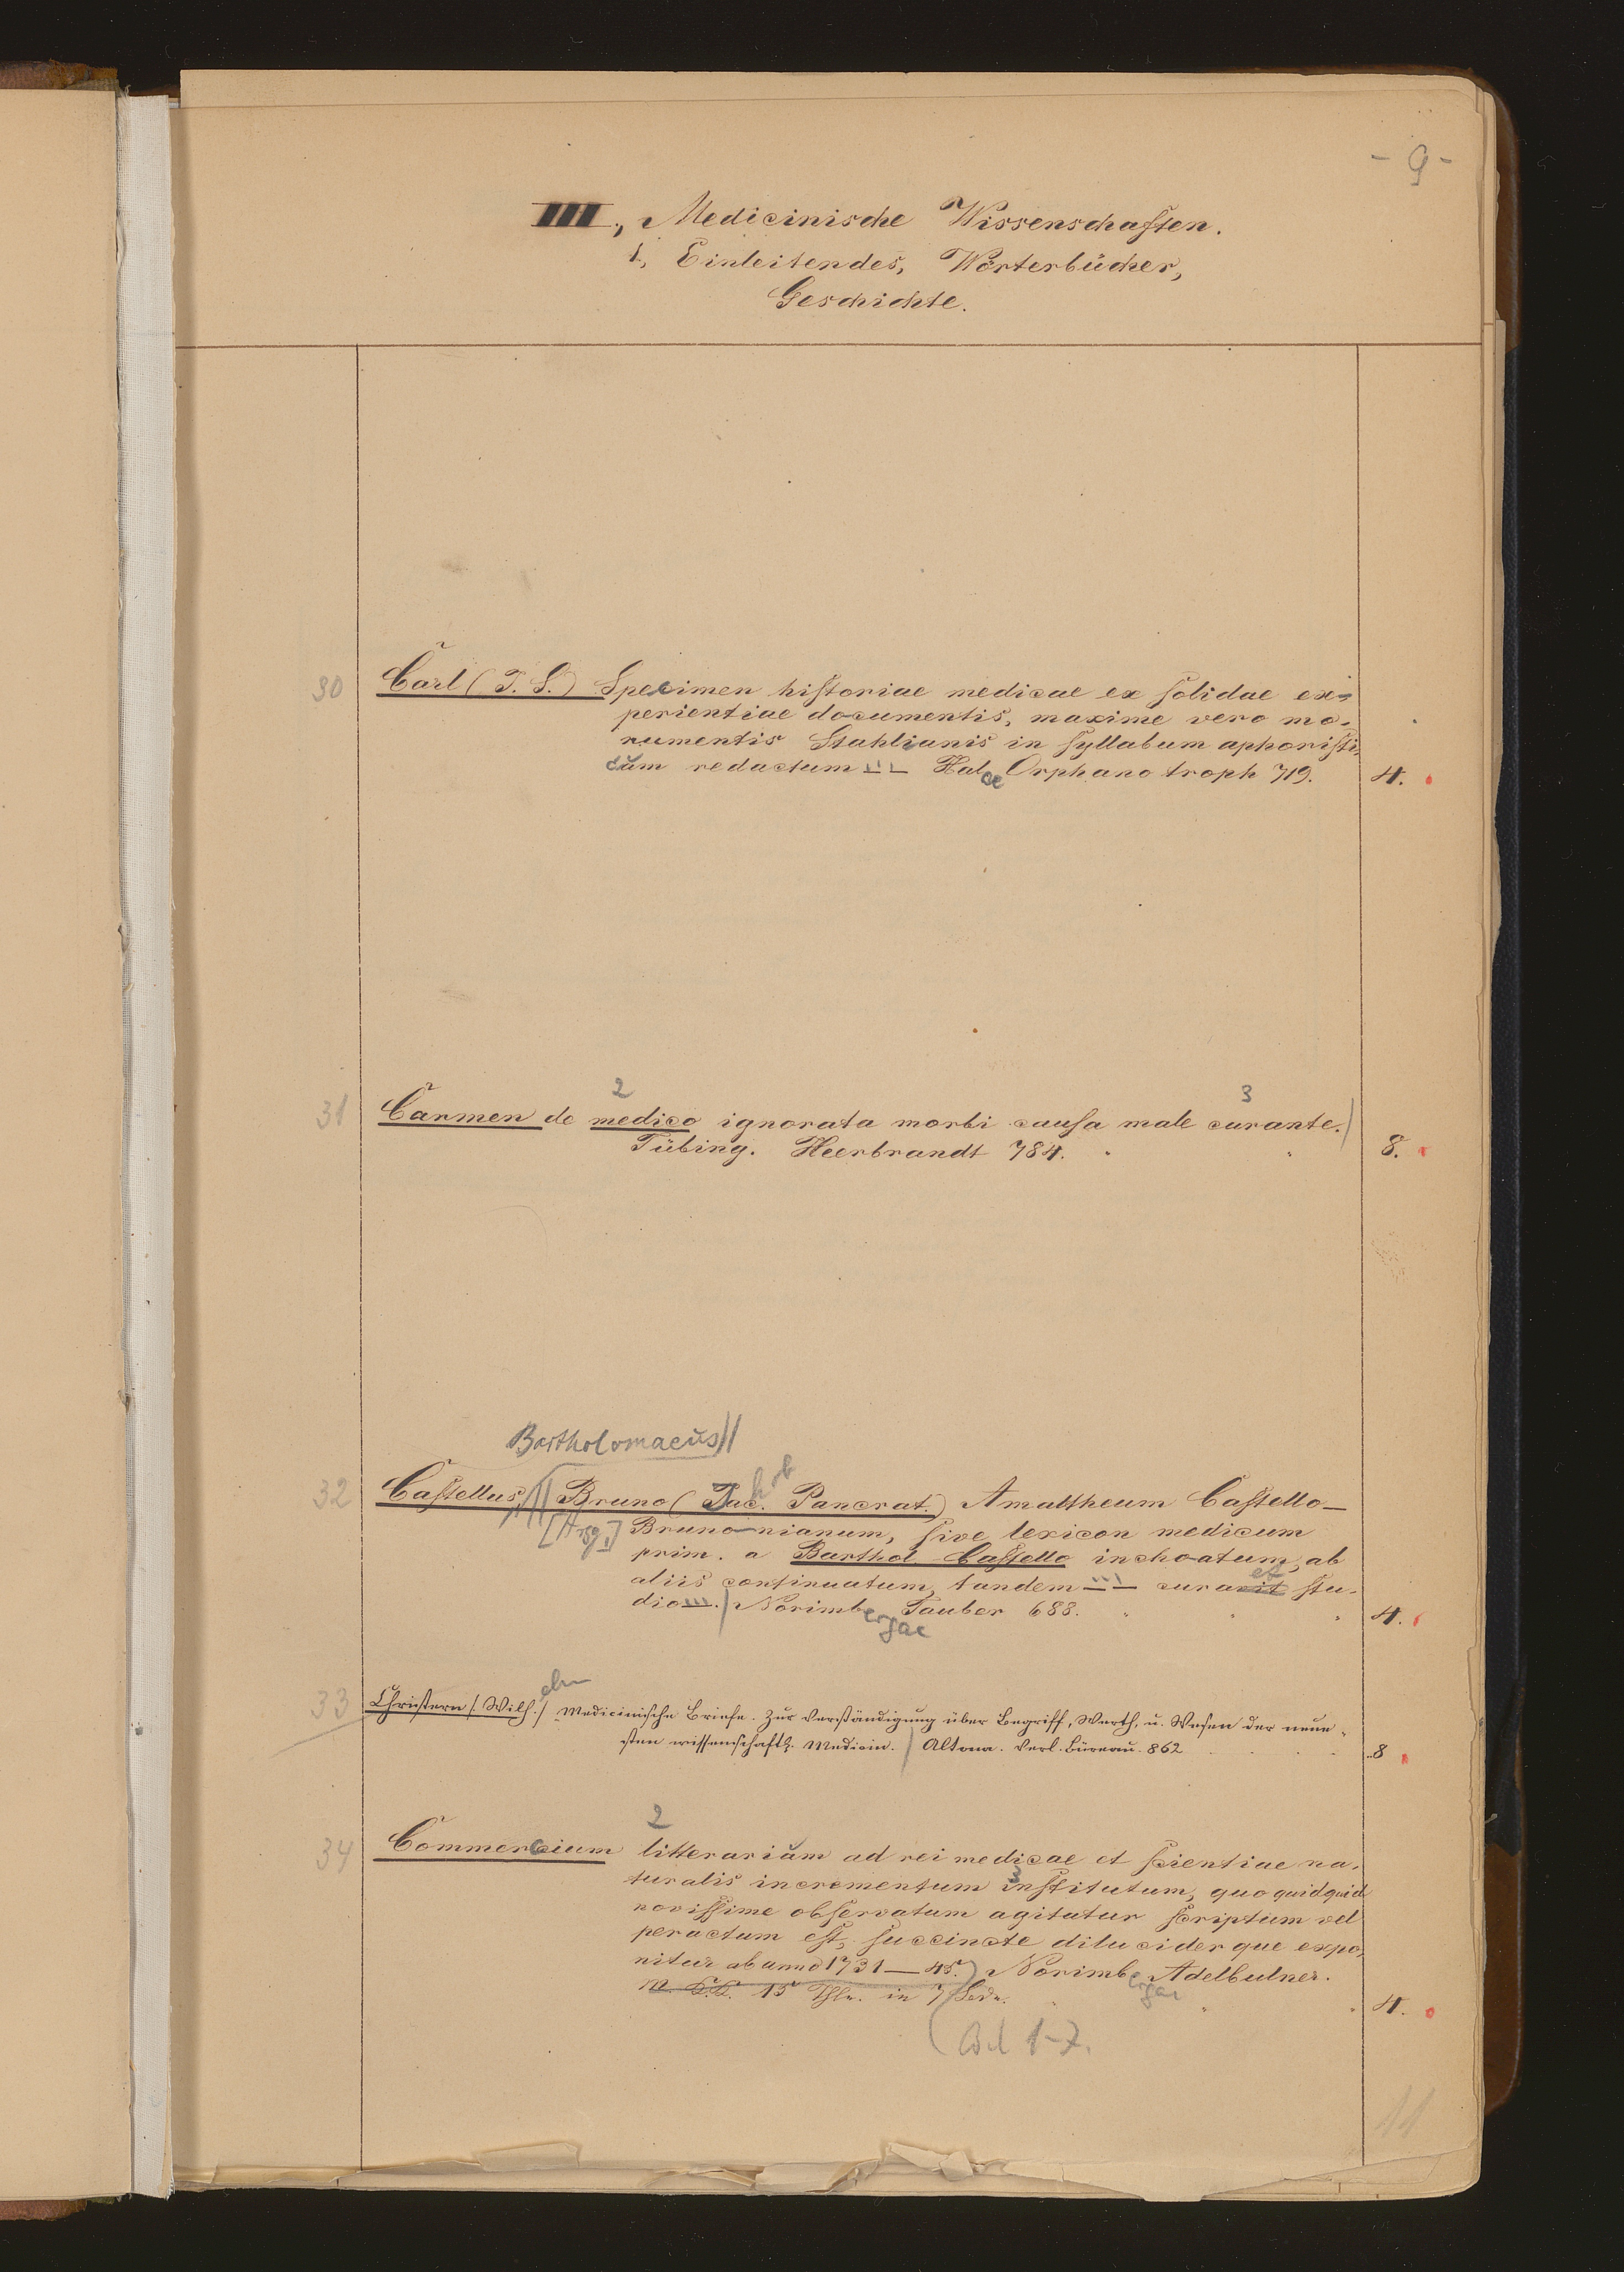 - 9 -
III, Medicinische Wissenschaften.
1, Einleitendes, Wörterbücher,
Geschichte.
30 Carl (J. S.) Specimen historiae medicae ex solidae ex-
perientiae documentis, maxime vero mo-
numentis Stahlianis in syllabum aphoristi-
cum redactum ... Halae Orphanotroph 719. 4.
2 3
31 Carmen de medico ignorata morbi causa male curante.
Tübing. Heerbrandt 784. 8.
Bartholomaeus
32 Castellus, Bruno (Jac. Pancrat.) Amaltheum Castello-
[Hrsg.] Brunonianum, sive lexicon medicum
prim. a Barthol. Castello inchoatum, ab
aliis continuatum, tandem ... curavit et stu-
dio .... Norimbergae Tauber 688. 4.
33 Christern (Wilhelm) Medicinische Briefe. Zur Verständigung über Begriff, Werth, u. Wesen der neue-
sten wissenschaftl. Medicin. Altona. Verl. Büreau. 862 8
2
34 Commercium litterarium ad rei medicae et scientiae na-
turalis incrementum institutum, quo quidquid
novissime observatum agitatur scriptum vel
peractum est, succincte dilucider que expo-
nitur ab anno 1731—45. Norimbergae Adelbulner.
15 Thle. in 7 Bdn. 4.
Bd 1-7.
11